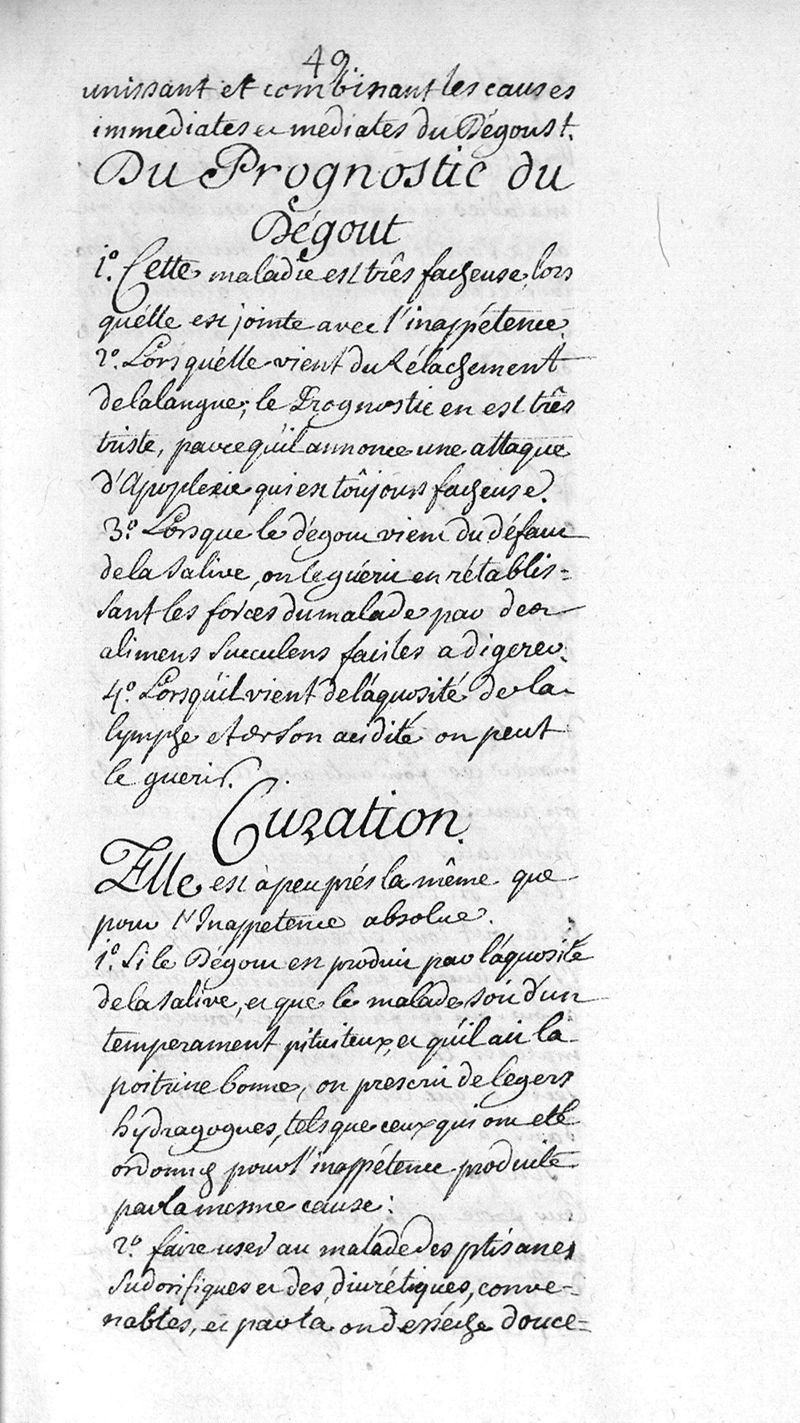 49
unissant et combinant les causes
immediates et mediates du Dégoust.
Du Prognostic du
Dégout
1º. Cette maladie est três facheuse, lors
qu'élle est jointe avec l'inappétence.
2º. Lors qu'élle vient du Rélachement
de la langue; le Prognostic en est três
triste, parce qu'il annonce une attaque
d'Apoplexie qui est toûjours facheuse.
3º. Lorsque le dégout vient du défaut
de la Salive, on le guérit en rétablis=
sant les forces du malade par des
alimens succulens faciles a digerer.
4º. Lorsqu'il vient de l'aquosité de la
lymphe et de son acidité on peut
le guerir.
Curation.
Elle est à peu prés la même que
pour l'Inappetence absolue.
1º. Si le Dégout est produit par l'aquosité
de la Salive, et que le malade soit d'un
temperament pituiteux, et qu'il ait la
poitrine bonne, on prescrit de legers
hydragogues, tels que ceux qui ont eté
ordonnés pour l'inappétence produite
par la mesme cause:
2º. faire user au malade des ptisanes
Sudorifiques et des diurétiques, conve=
nables, et par la on desséche douce=